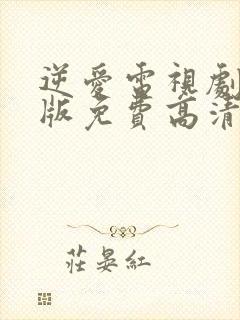 逆愛電視劇
版免費高清
莊晏紅